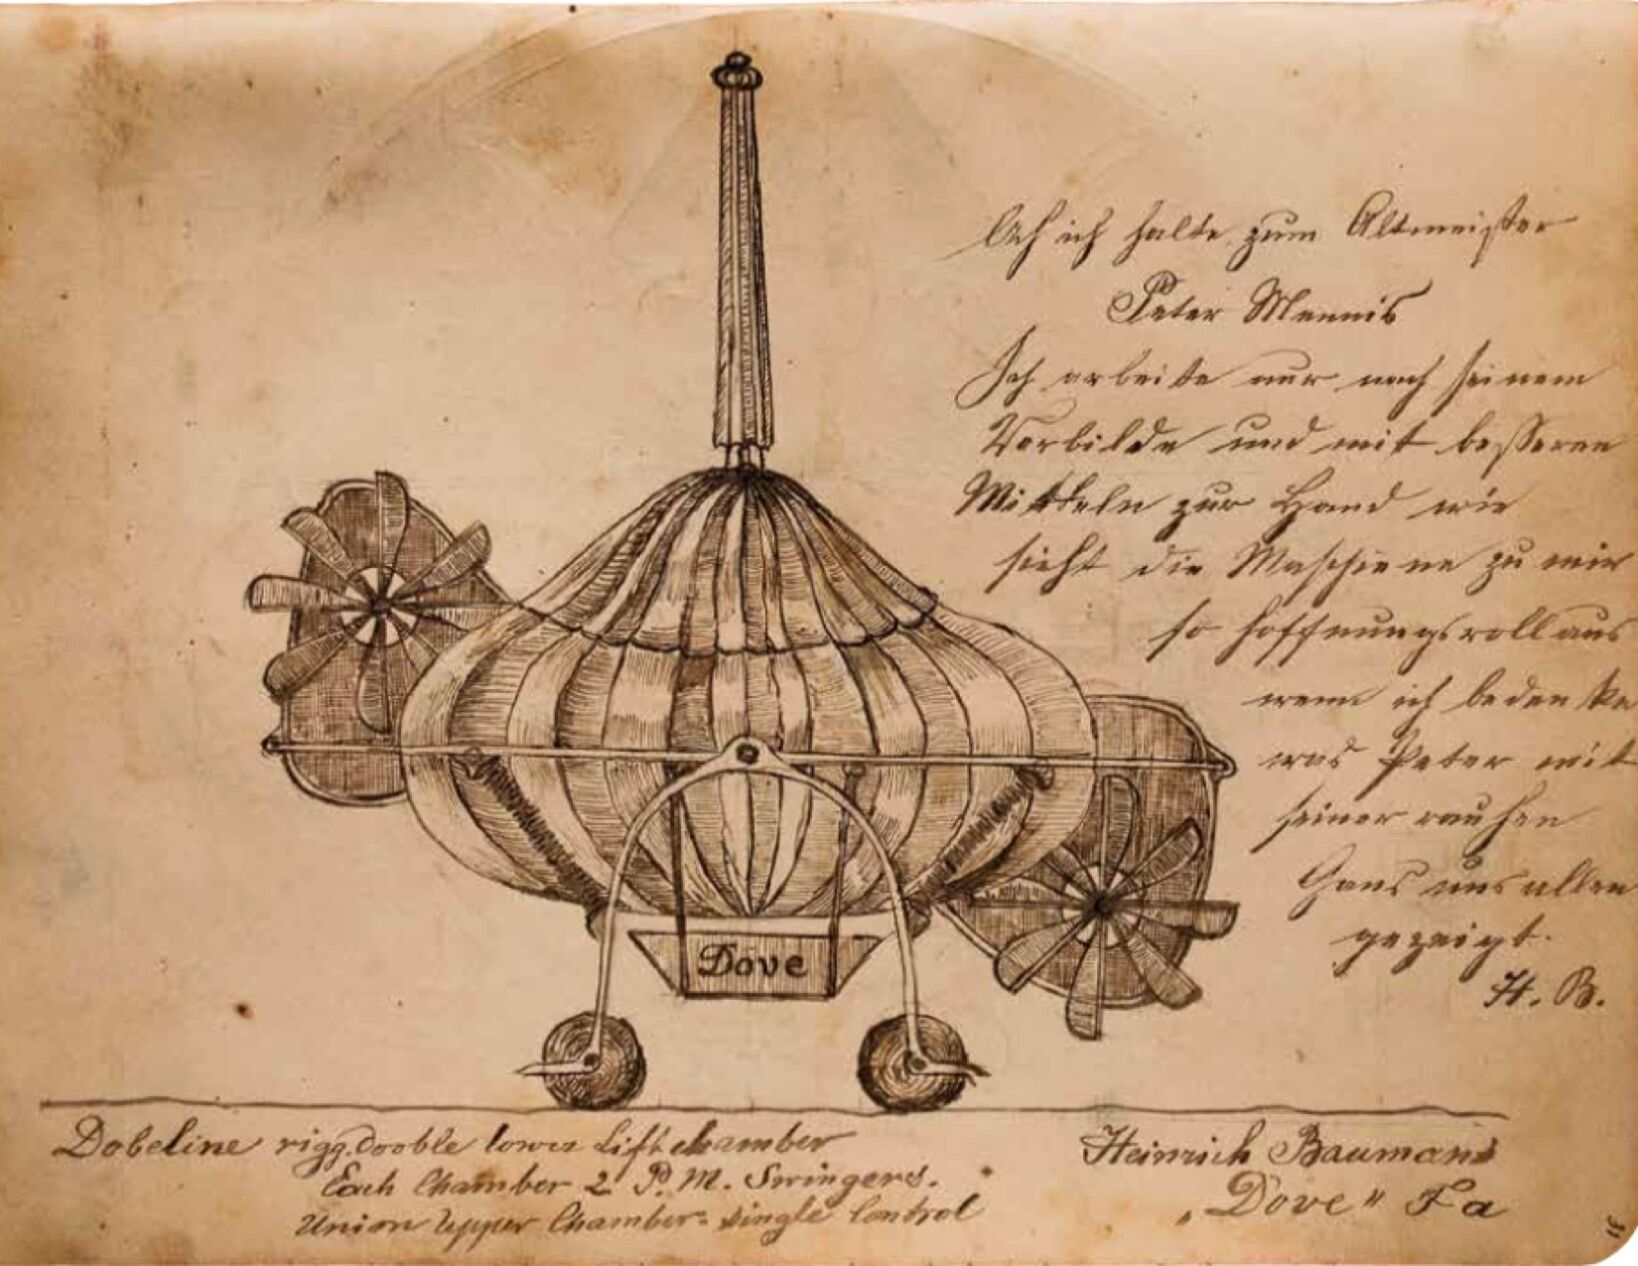 Ach ich halte zum Altmeister
Peter Mennis
Ich arbeite nur nach seinem
Vorbilde und mit besseren
Mitteln zur Hand wie
sieht die Maschiene zu mir
so hoffnungsvoll aus
wenn ich bedenke
was Peter mit
seiner rauhen
Gans uns allen
gezeigt.
H. B.
Dove
Dobeline rigg. dooble lower Lift chamber
Each Chamber 2 P. M. Swingers.
Union Upper Chamber single Control
Heinrich Baumann
„Dove" Fa